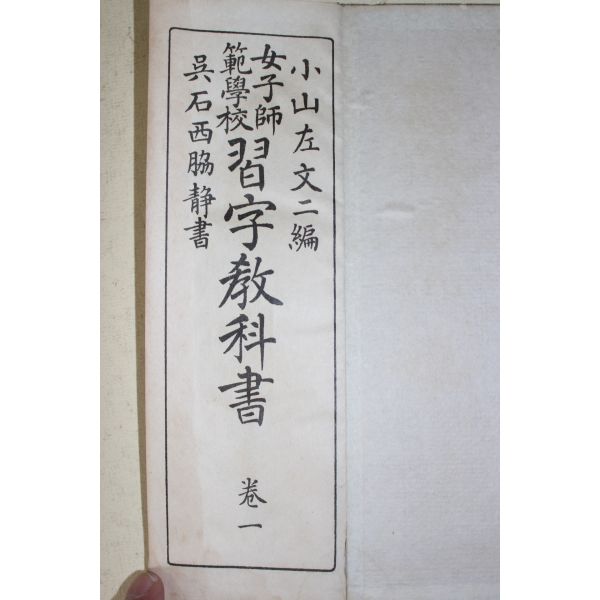 小山左文二編
女子師範學校習字教科書 卷一
呉石西脇静書